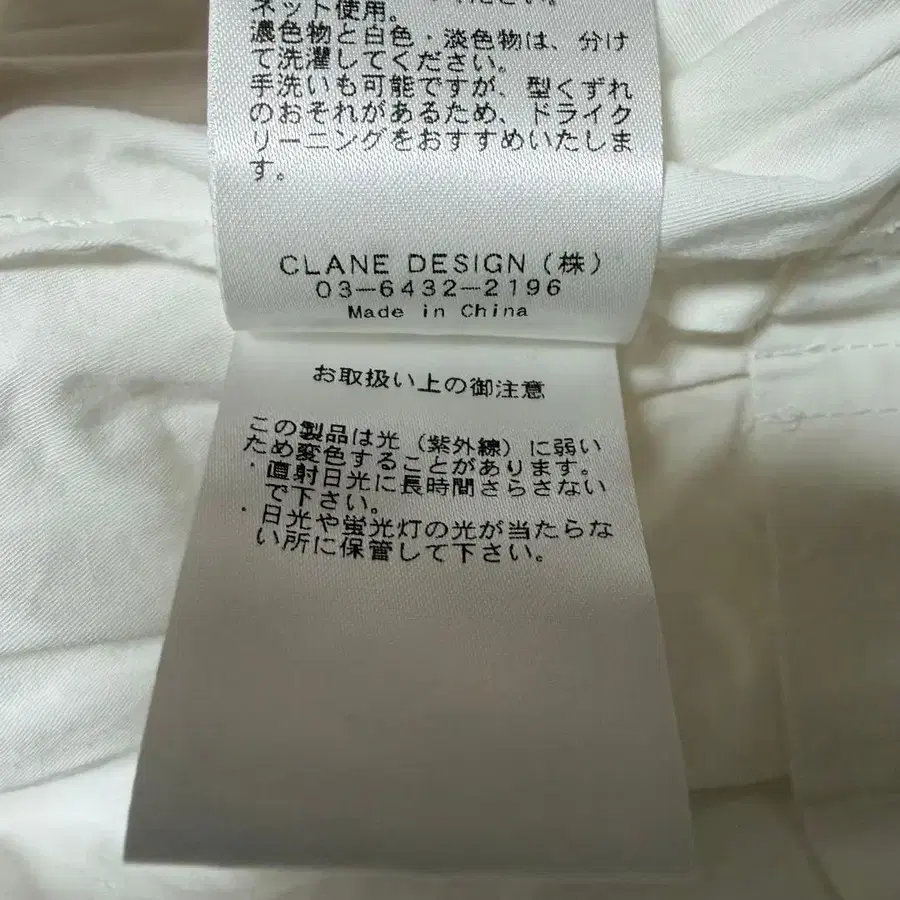 ください。
ネット使用。
濃色物と白色・淡色物は、分け
て洗濯してください。
手洗いも可能ですが、型くずれ
のおそれがあるため、ドライク
リーニングをおすすめいたしま
す。
CLANE DESIGN (株)
03-6432-2196
Made in China
お取扱い上の御注意
この製品は光（紫外線）に弱い
ため変色することがあります。
・直射日光に長時間さらさない
で下さい。
・日光や蛍光灯の光が当たらな
い所に保管して下さい。